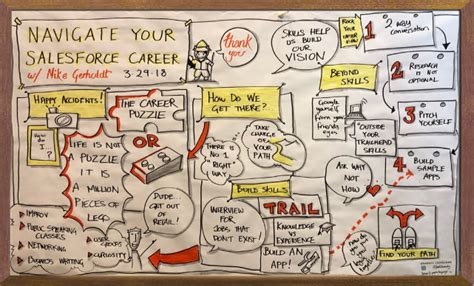 NAVIGATE YOUR
SALESFORCE CAREER
w/ Mike Gerholdt 3-29-18
thank
you
HAPPY ACCIDENTS!
How do
I
?
THE CAREER
PUZZLE
OR
LIFE IS NOT
A PUZZLE
IT IS
A MILLION
PIECES OF
LEGO
IMPROV
PUBLIC SPEAKING
CLASSES
NETWORKING
BUSINESS WRITING
USER
GROUPS
CURIOSITY
DUDE...
GET OUT
OF
RETAIL!
HOW DO WE
GET THERE?
THERE IS
NO 1
RIGHT
WAY
TAKE
CHARGE
OF
YOUR
PATH
BUILD SKILLS
INTERVIEW
FOR
JOBS THAT
DON'T EXIST!
TRAIL
KNOWLEDGE
VS
EXPERIENCE
BUILD AN
APP!
SKILLS HELP
US BUILD
OUR
VISION
BEYOND
SKILLS
Google
yourself
from your
friends
eyes
OUTSIDE
YOUR
TRAILHEAD
SKILLS
ASK WHY
NOT
HOW
ROCK
YOUR
INTERVIEW
1
2 WAY
CONVERSATION
2
RESEARCH
IS NOT
OPTIONAL
3
PITCH
YOURSELF
4
BUILD
SAMPLE
APPS
FIND YOUR PATH